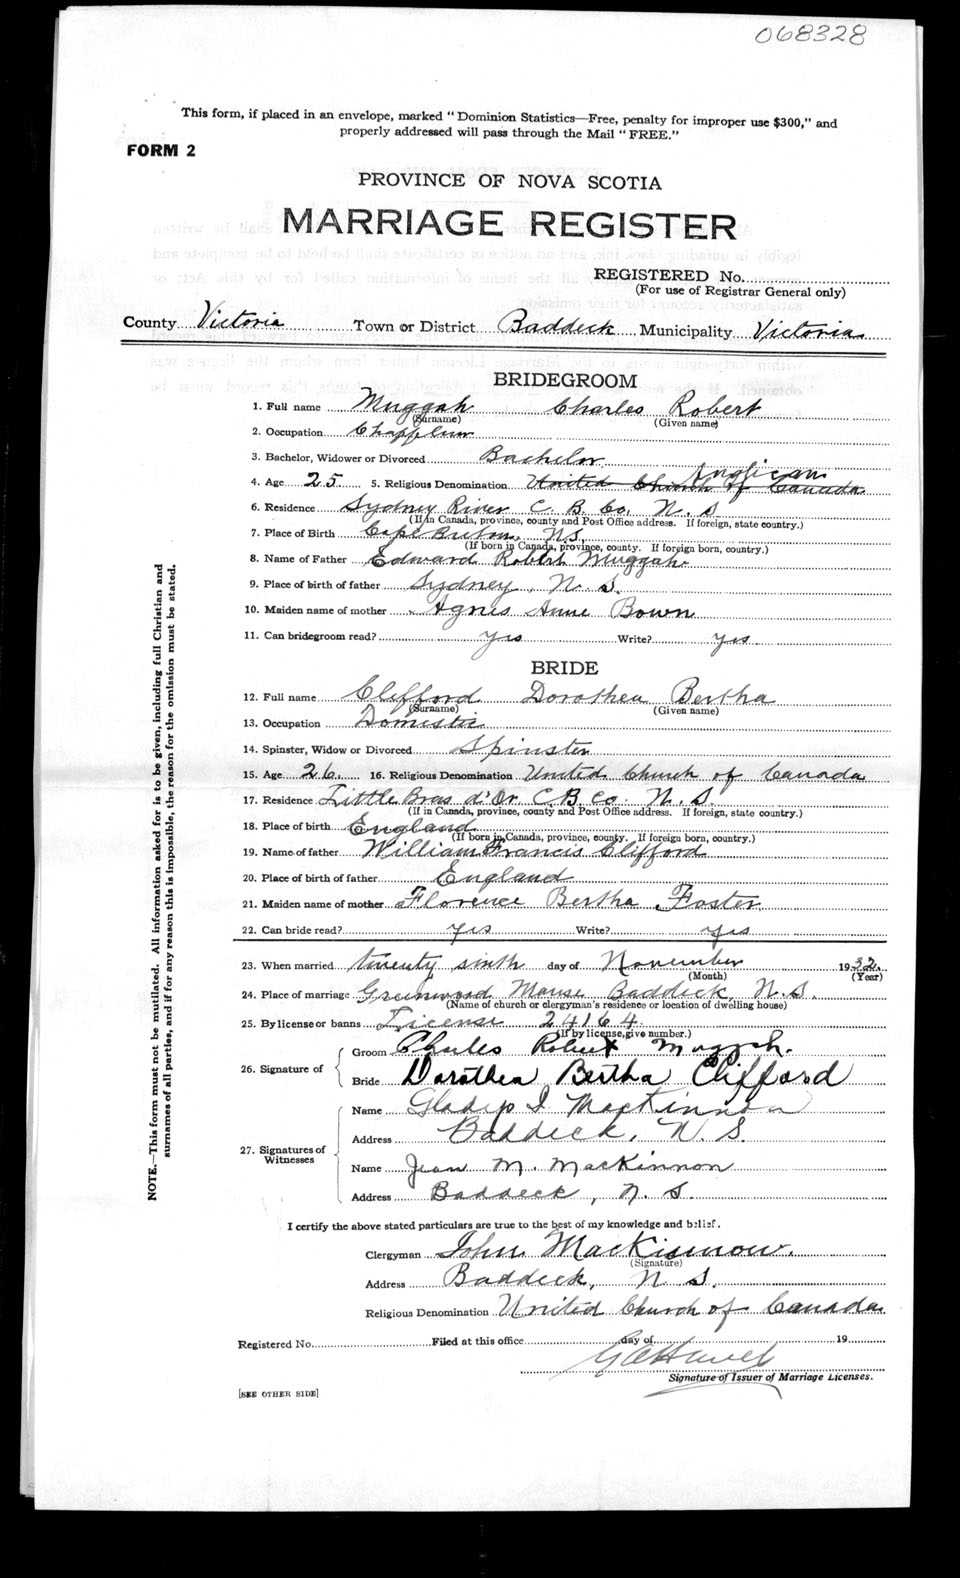 068328
This form, if placed in an envelope, marked "Dominion Statistics—Free, penalty for improper use $300," and
properly addressed will pass through the Mail "FREE."
FORM 2
PROVINCE OF NOVA SCOTIA
MARRIAGE REGISTER
REGISTERED No.
(For use of Registrar General only)
County Victoria Town or District Baddeck Municipality Victoria
BRIDEGROOM
1. Full name Muggah Charles Robert
(Surname) (Given name)
2. Occupation
3. Bachelor, Widower or Divorced Bachelor
Anglican
4. Age 25 5. Religious Denomination United Church of Canada
6. Residence Sydney River C. B. Co. N. S
(If in Canada, province, county and Post Office address. If foreign, state country.)
7. Place of Birth Cape Breton, NS.
(If born in Canada, province, county. If foreign born, country.)
8. Name of Father Edward Robert Muggah
9. Place of birth of father Sydney, N. S.
10. Maiden name of mother Agnes Anne Bown
11. Can bridegroom read? yes Write? yes
BRIDE
12. Full name Clifford Dorothea Bertha
(Surname) (Given name)
13. Occupation Domestic
14. Spinster, Widow or Divorced Spinster
15. Age 26 16. Religious Denomination United Church of Canada
17. Residence Little Bras d'Or C.B. Co. N. S.
(If in Canada, province, county and Post Office address. If foreign, state country.)
18. Place of birth England
(If born in Canada, province, county. If foreign born, country.)
19. Name of father William Francis Clifford
20. Place of birth of father England
21. Maiden name of mother Florence Bertha Foster
22. Can bride read? yes Write? yes
23. When married twenty sixth day of November 1932.
(Month) (Year)
24. Place of marriage Greenwood Manse Baddeck, N.S.
(Name of church or clergyman's residence or location of dwelling house)
25. By license or banns License 24164
(If by license, give number.)
26. Signature of
Groom Charles Robert Muggah.
Bride Dorothea Bertha Clifford
27. Signatures of Witnesses
Name Gladys I MacKinnon
Address Baddeck, N. S.
Name Jean M. MacKinnon
Address Baddeck, N. S.
I certify the above stated particulars are true to the best of my knowledge and belief.
Clergyman John MacKinnon.
(Signature)
Address Baddeck, N S.
Religious Denomination United Church of Canada
Registered No. Filed at this office day of 19
Signature of Issuer of Marriage Licenses.
[SEE OTHER SIDE]
NOTE.—This form must not be mutilated. All information asked for is to be given, including full Christian and
surnames of all parties, and if for any reason this is impossible, the reason for the omission must be stated.